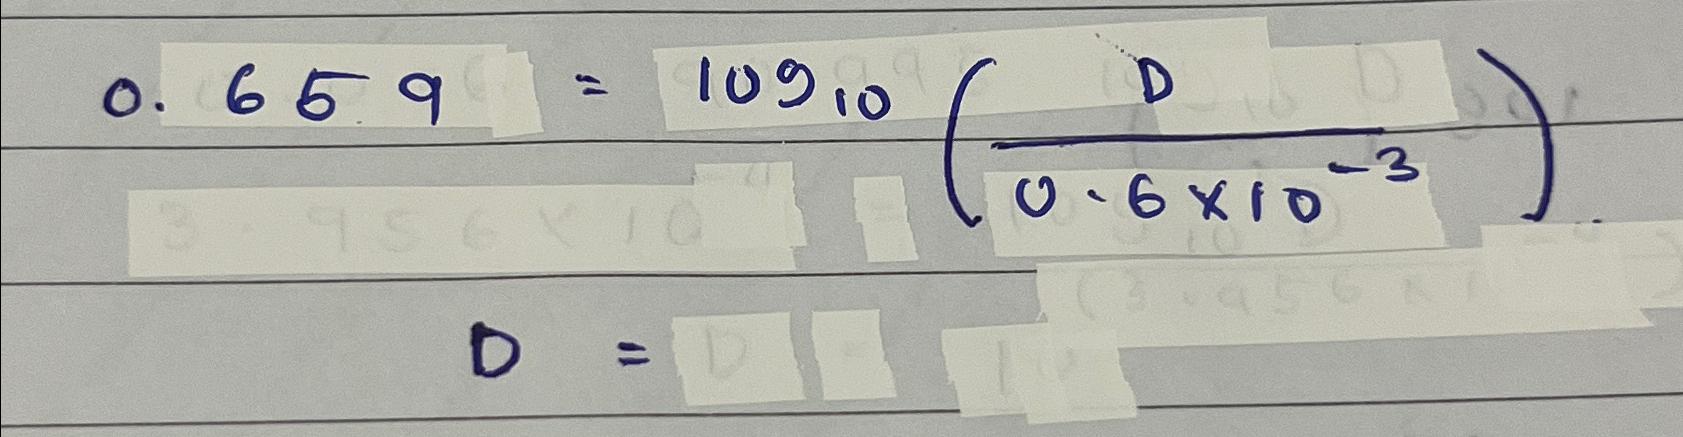 0.659 = log₁₀ ( D / 0.6 × 10⁻³ )
D =